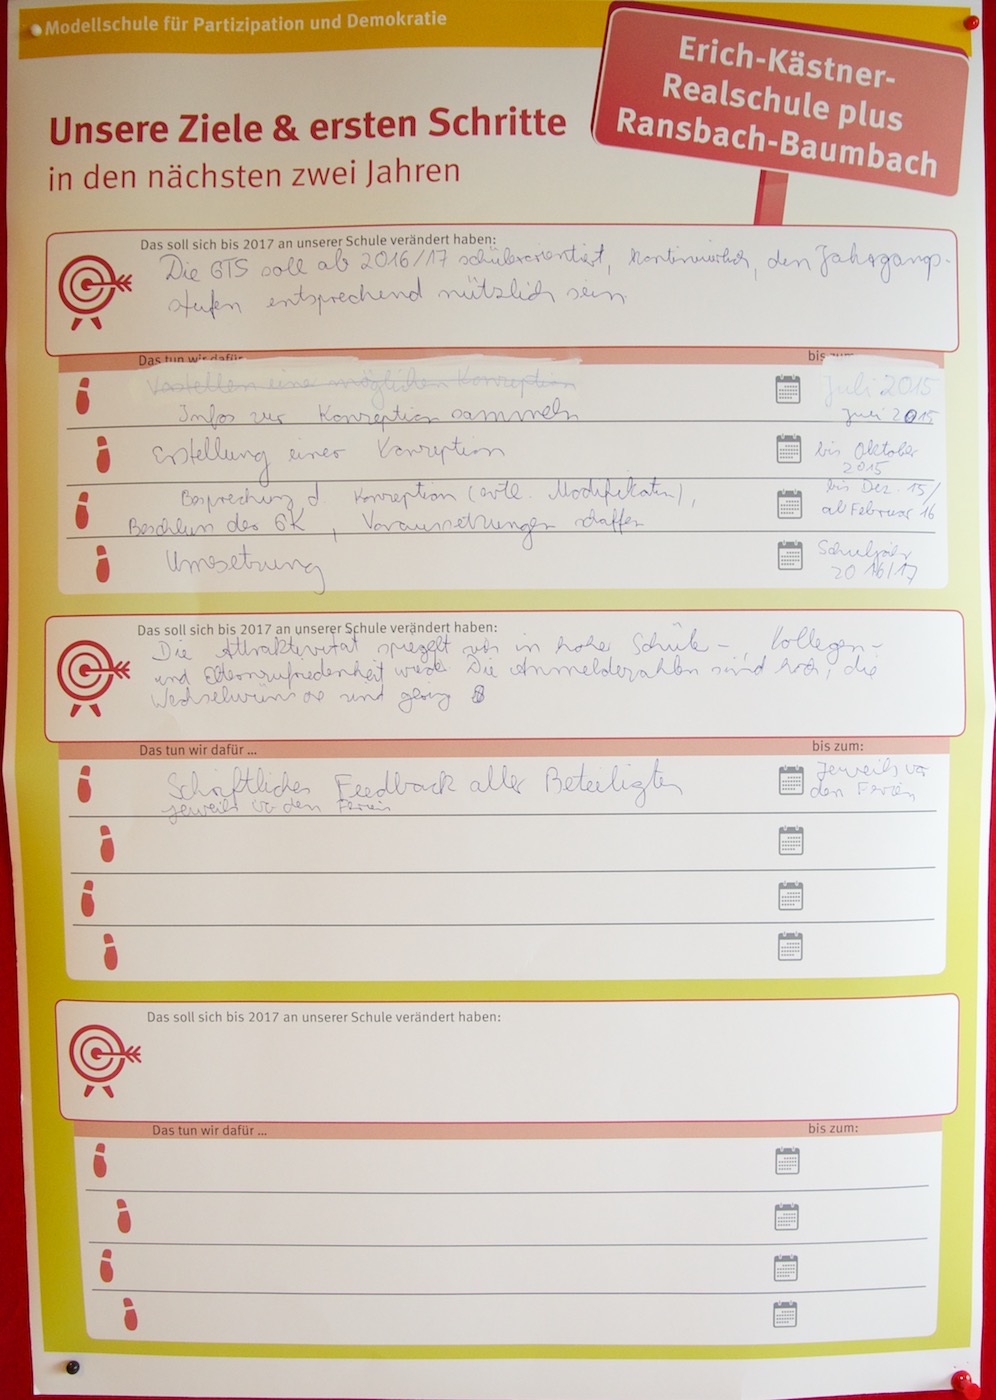 Modellschule für Partizipation und Demokratie
Erich-Kästner-
Realschule plus
Ransbach-Baumbach
Unsere Ziele & ersten Schritte
in den nächsten zwei Jahren
Das soll sich bis 2017 an unserer Schule verändert haben:
Die GTS soll ab 2016/17 schülerorientiert, kontinuierlich, den Jahrgangs-
stufen entsprechend nützlich sein.
Das tun wir dafür
bis zum:
Vorstellen einer möglichen Konzeption
Juli 2015
Infos zur Konzeption sammeln
Juli 2015
Erstellung einer Konzeption
bis Oktober
2015
Besprechung d. Konzeption (evtl. Modifikation),
Beschluss der GK, Voraussetzungen schaffen
bis Dez. 15/
ab Februar 16
Umsetzung
Schuljahr
2016/17
Das soll sich bis 2017 an unserer Schule verändert haben:
Die Attraktivität spiegelt sich in hoher Schüler-, Kollegen-
und Elternzufriedenheit wieder. Die Anmeldezahlen sind hoch, die
Wechselwünsche sind gering
Das tun wir dafür ...
bis zum:
Schriftliches Feedback aller Beteiligten
jeweils vor den Ferien
Jeweils vor
den Ferien
Das soll sich bis 2017 an unserer Schule verändert haben:
Das tun wir dafür ...
bis zum: